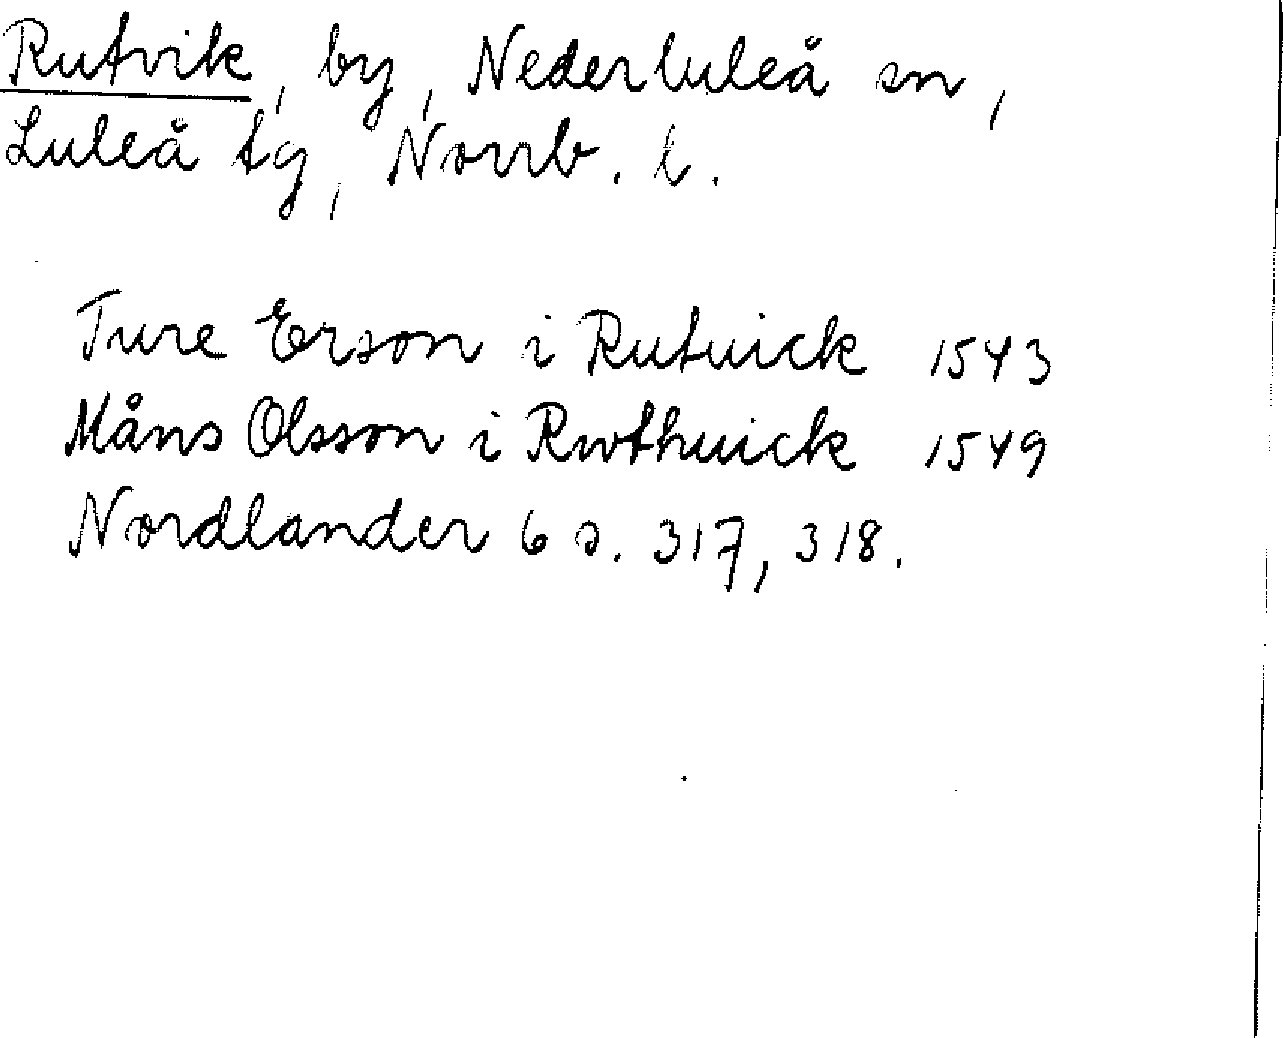 Rutvik, by, Nederluleå sn,
Luleå tg, Norrb. l.
Ture Erson i Rutuick 1543
Måns Olsson i Rwthuick 1549
Nordlander 6 s. 317, 318.